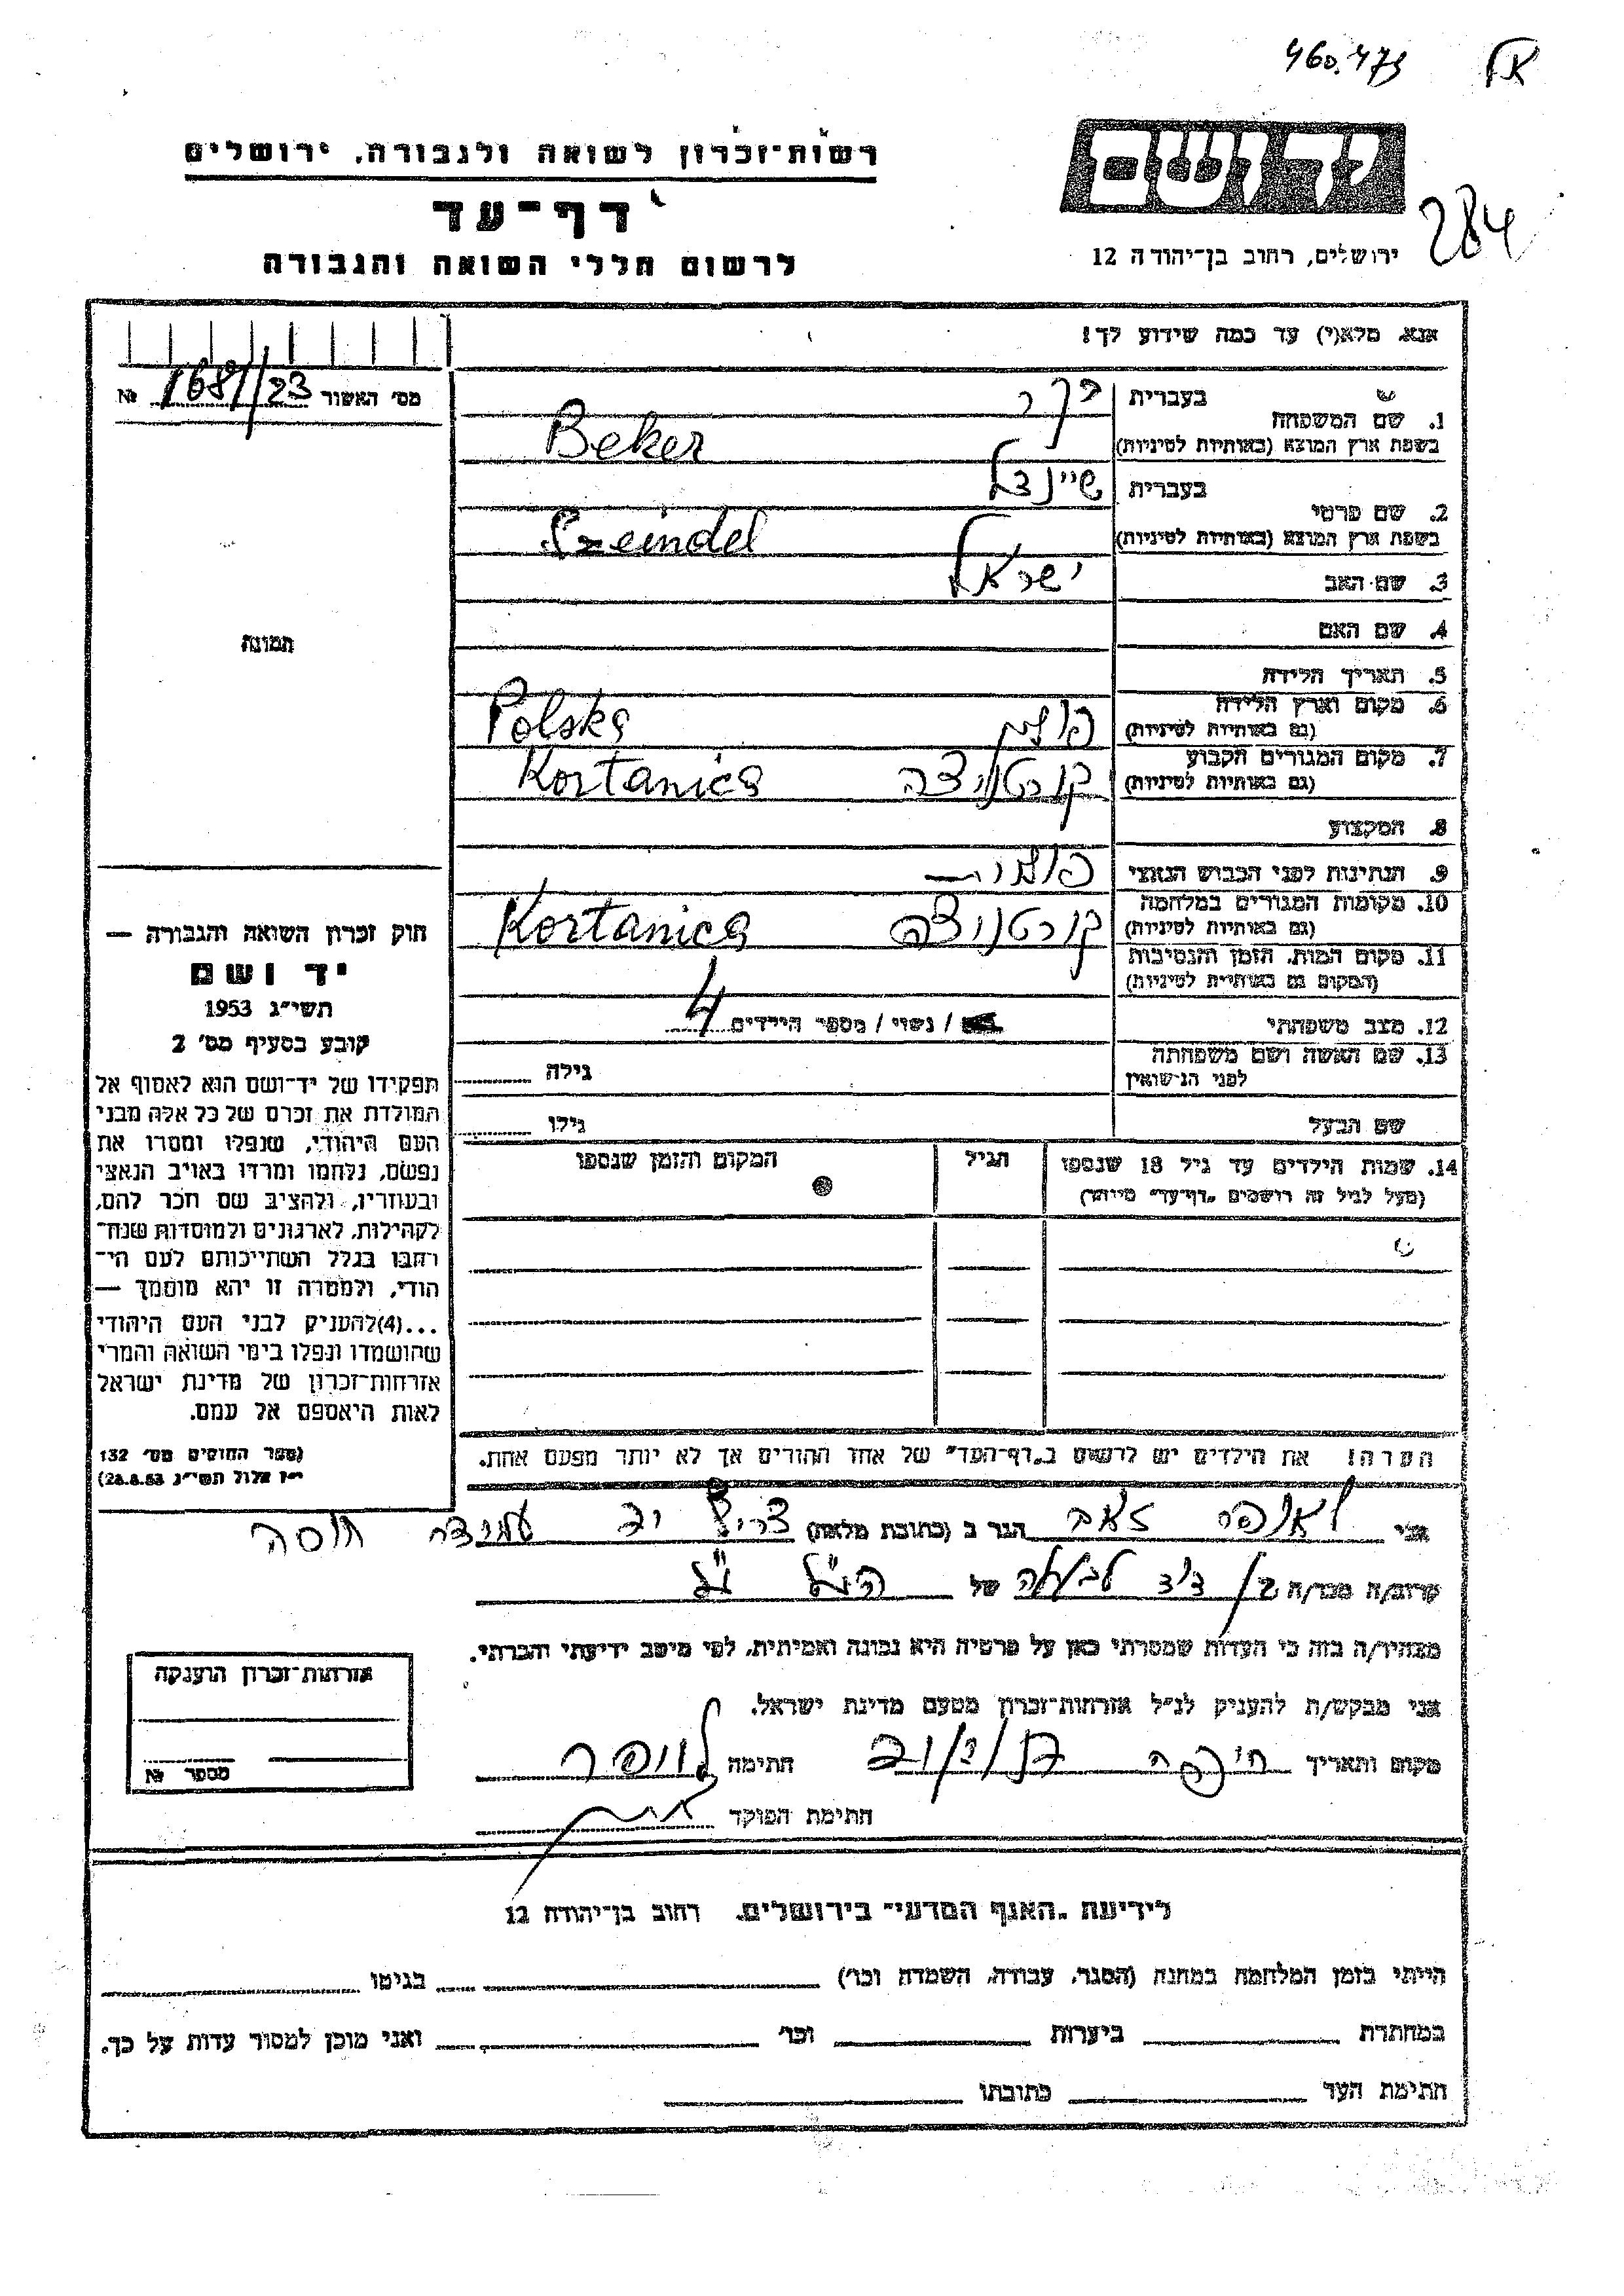 460.473
רשות-זכרון לשואה ולגבורה, ירושלים
דף-עד
לרשום חללי השואה והגבורה
יד ושם
ירושלים, רחוב בן-יהודה 12
284
אנא, מלא(י) עד כמה שידוע לך!
מס' האשור 1681/23 №
1. שם המשפחה
בעברית בקר
בשפת ארץ המוצא (באותיות לטיניות) Beker
2. שם פרטי
בעברית שיינדל
בשפת ארץ המוצא (באותיות לטיניות) Szeindel
3. שם האב ישראל
4. שם האם
5. תאריך הלידה
6. מקום וארץ הלידה
(גם באותיות לטיניות) פולין Polska
7. מקום המגורים הקבוע
(גם באותיות לטיניות) קורטניצה Kortanica
8. המקצוע
9. הנתינות לפני הכבוש הנאצי פולנית
10. מקומות המגורים במלחמה
(גם באותיות לטיניות) קורטניצה Kortanica
11. מקום המות, הזמן והנסיבות
(המקום גם באותיות לטיניות)
12. מצב משפחתי / נשוי / מספר הילדים 4
13. שם האשה ושם משפחתה
לפני הנישואין גילה
שם הבעל גילו
14. שמות הילדים עד גיל 18 שנספו
(מעל לגיל זה רושמים "דף-עד" מיוחד)
הגיל
המקום והזמן שנספו
הערה! את הילדים יש לרשום ב"דף-העד" של אחד ההורים אך לא יותר מפעם אחת.
תמונה
חוק זכרון השואה והגבורה —
יד ושם
תשי"ג 1953
קובע בסעיף מס' 2
תפקידו של יד-ושם הוא לאסוף אל
המולדת את זכרם של כל אלה מבני
העם היהודי, שנפלו ומסרו את
נפשם, נלחמו ומרדו באויב הנאצי
ובעוזריו, ולהציב שם וזכר להם,
לקהילות, לארגונים ולמוסדות שנח־
רבו בגלל השתייכותם לעם הי־
הודי, ולמטרה זו יהא מוסמך —
...(4)להעניק לבני העם היהודי
שהושמדו ונפלו בימי השואה והמרי
אזרחות-זכרון של מדינת ישראל
לאות היאספם אל עמם.
(ספר החוקים מס' 132
י"ז אלול תשי"ג 28.8.53)
אני זאב הגר ב (כתובת מלאה) צריף עמידר חוסה
קרוב/ה מכר/ה בן דוד לבעלה של הנ"ל
מצהיר/ה בזה כי העדות שמסרתי כאן על פרטיה היא נכונה ואמיתית, לפי מיטב ידיעתי והכרתי.
אני מבקש/ת להעניק לנ"ל אזרחות-זכרון מטעם מדינת ישראל.
מקום ותאריך חיפה חתימה
חתימת הפוקד
אזרחות-זכרון הוענקה
מספר №
לידיעת "האגף המדעי" בירושלים, רחוב בן-יהודה 12
הייתי בזמן המלחמה במחנה (הסגר, עבודה, השמדה וכו') בגיטו
במחתרת ביערות וכו' ואני מוכן למסור עדות על כך.
חתימת העד כתובתו